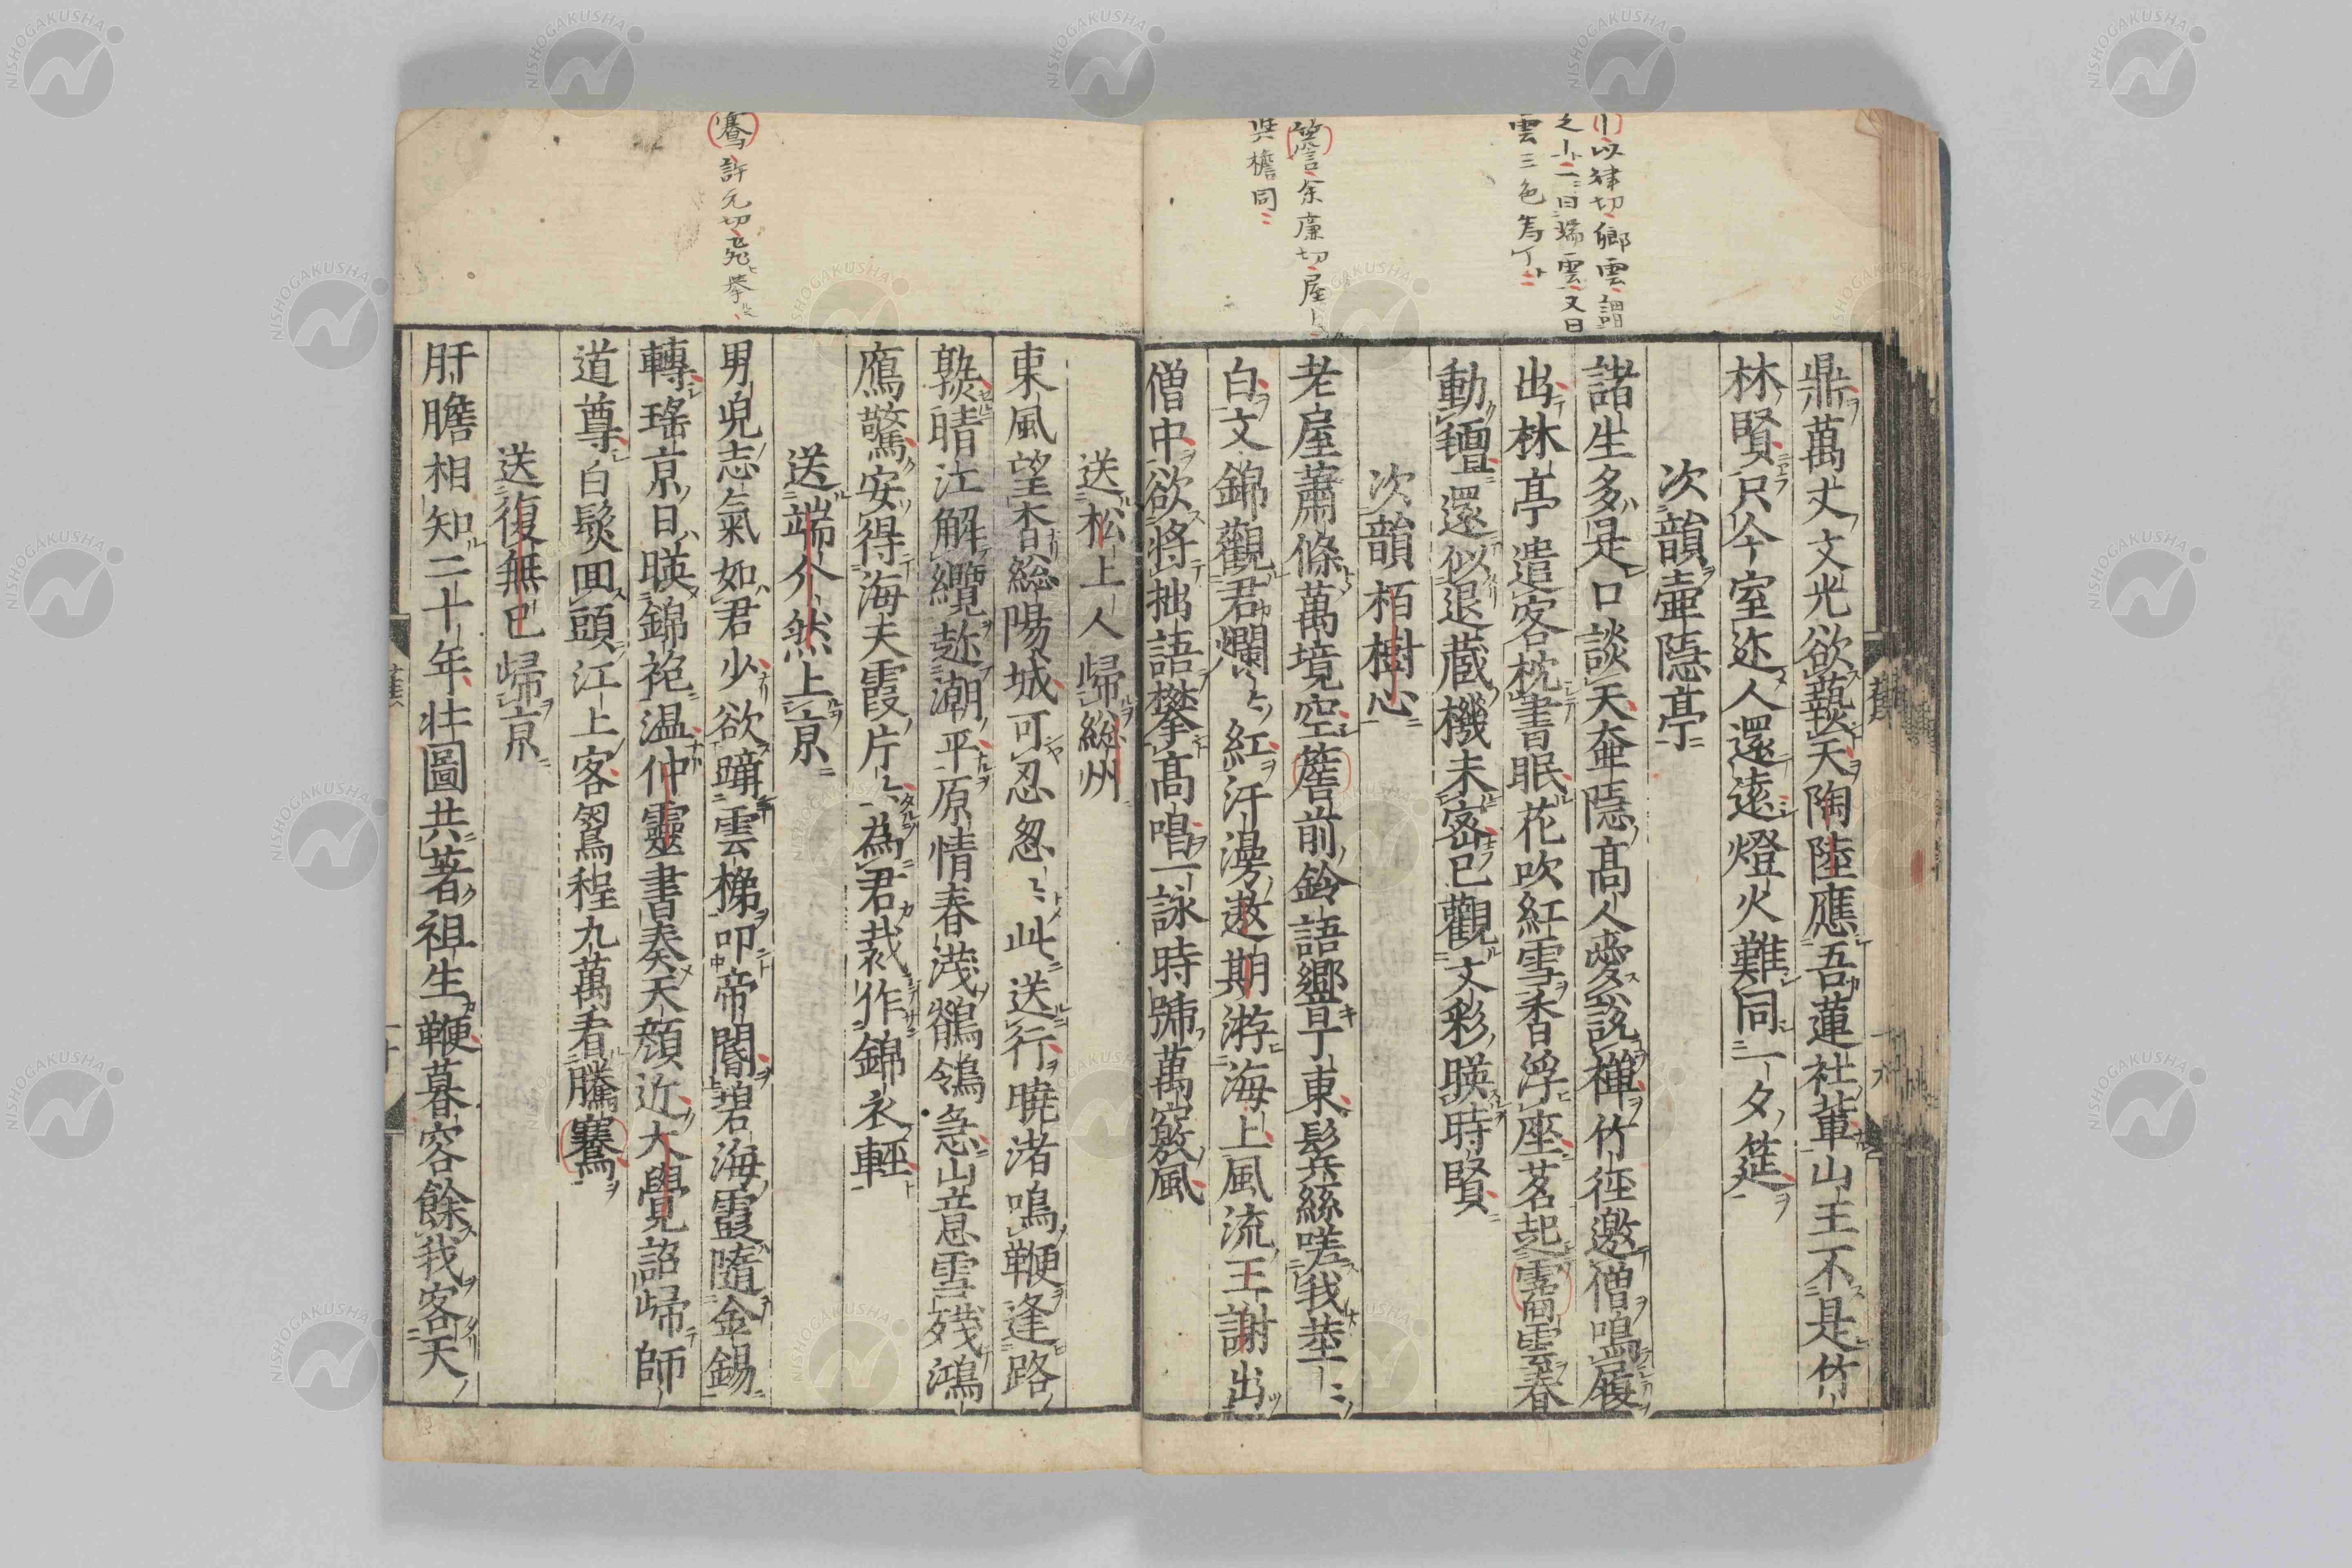 鼎萬丈文光欲爇天陶陸應吾蓮社軰山王不是竹
林賢只今室迩人還遠燈火難同一夕筵
次韻壷隠亭
諸生多是口談天奎隠高人愛説禅竹徑邀僧鳴屐
出林亭遣客枕書眠花吹紅雪香浮座茗起雲春
動還似退蔵機未密已觀文彩暎時賢
次韻栢樹心
老屋蕭條萬境空簷前鈴語響丁東髩絲嗟我莖〻
白文錦觀君爛〻紅汗漫遨期游海上風流王謝出
僧中欲將拙語攀高唱一詠時號萬竅風
送松上人歸総州
東風望杳総陽城可忍怱〻此送行曉渚鳴鞭逢路
熟晴江解纜趂潮平原情春淺鶺鴒急山意雪殘鴻
鴈驚安得海夫霞片〻為君裁作錦衣輕
送端介然上京
男皃志氣如君少欲躡雲梯叩帝閽碧海霞隨金錫
轉瑤京日暎錦袍温仲靈書奏天顔近大覺詔歸師
道尊白髮回頭江上客鴛程九萬看騰騫
送復無已歸京
肝膽相知二十年壮圖共著祖生鞭暮容餘我客天
以律切卿雲謂
之二曰矞雲又曰
雲三色為丁
簷余廉切屋上
與檐同
騫許元切飛舉